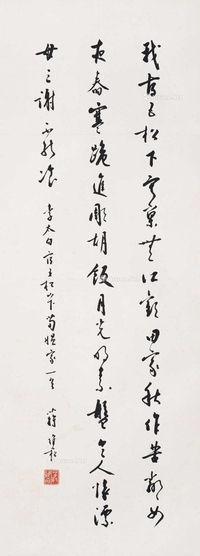 我宿五松下寂寥無所歡田家秋作苦鄰女
夜舂寒跪進彫胡飯月光明素盤令人慚漂
母三謝不能飡 李太白宿五松山下荀媼家一首 蔣維崧